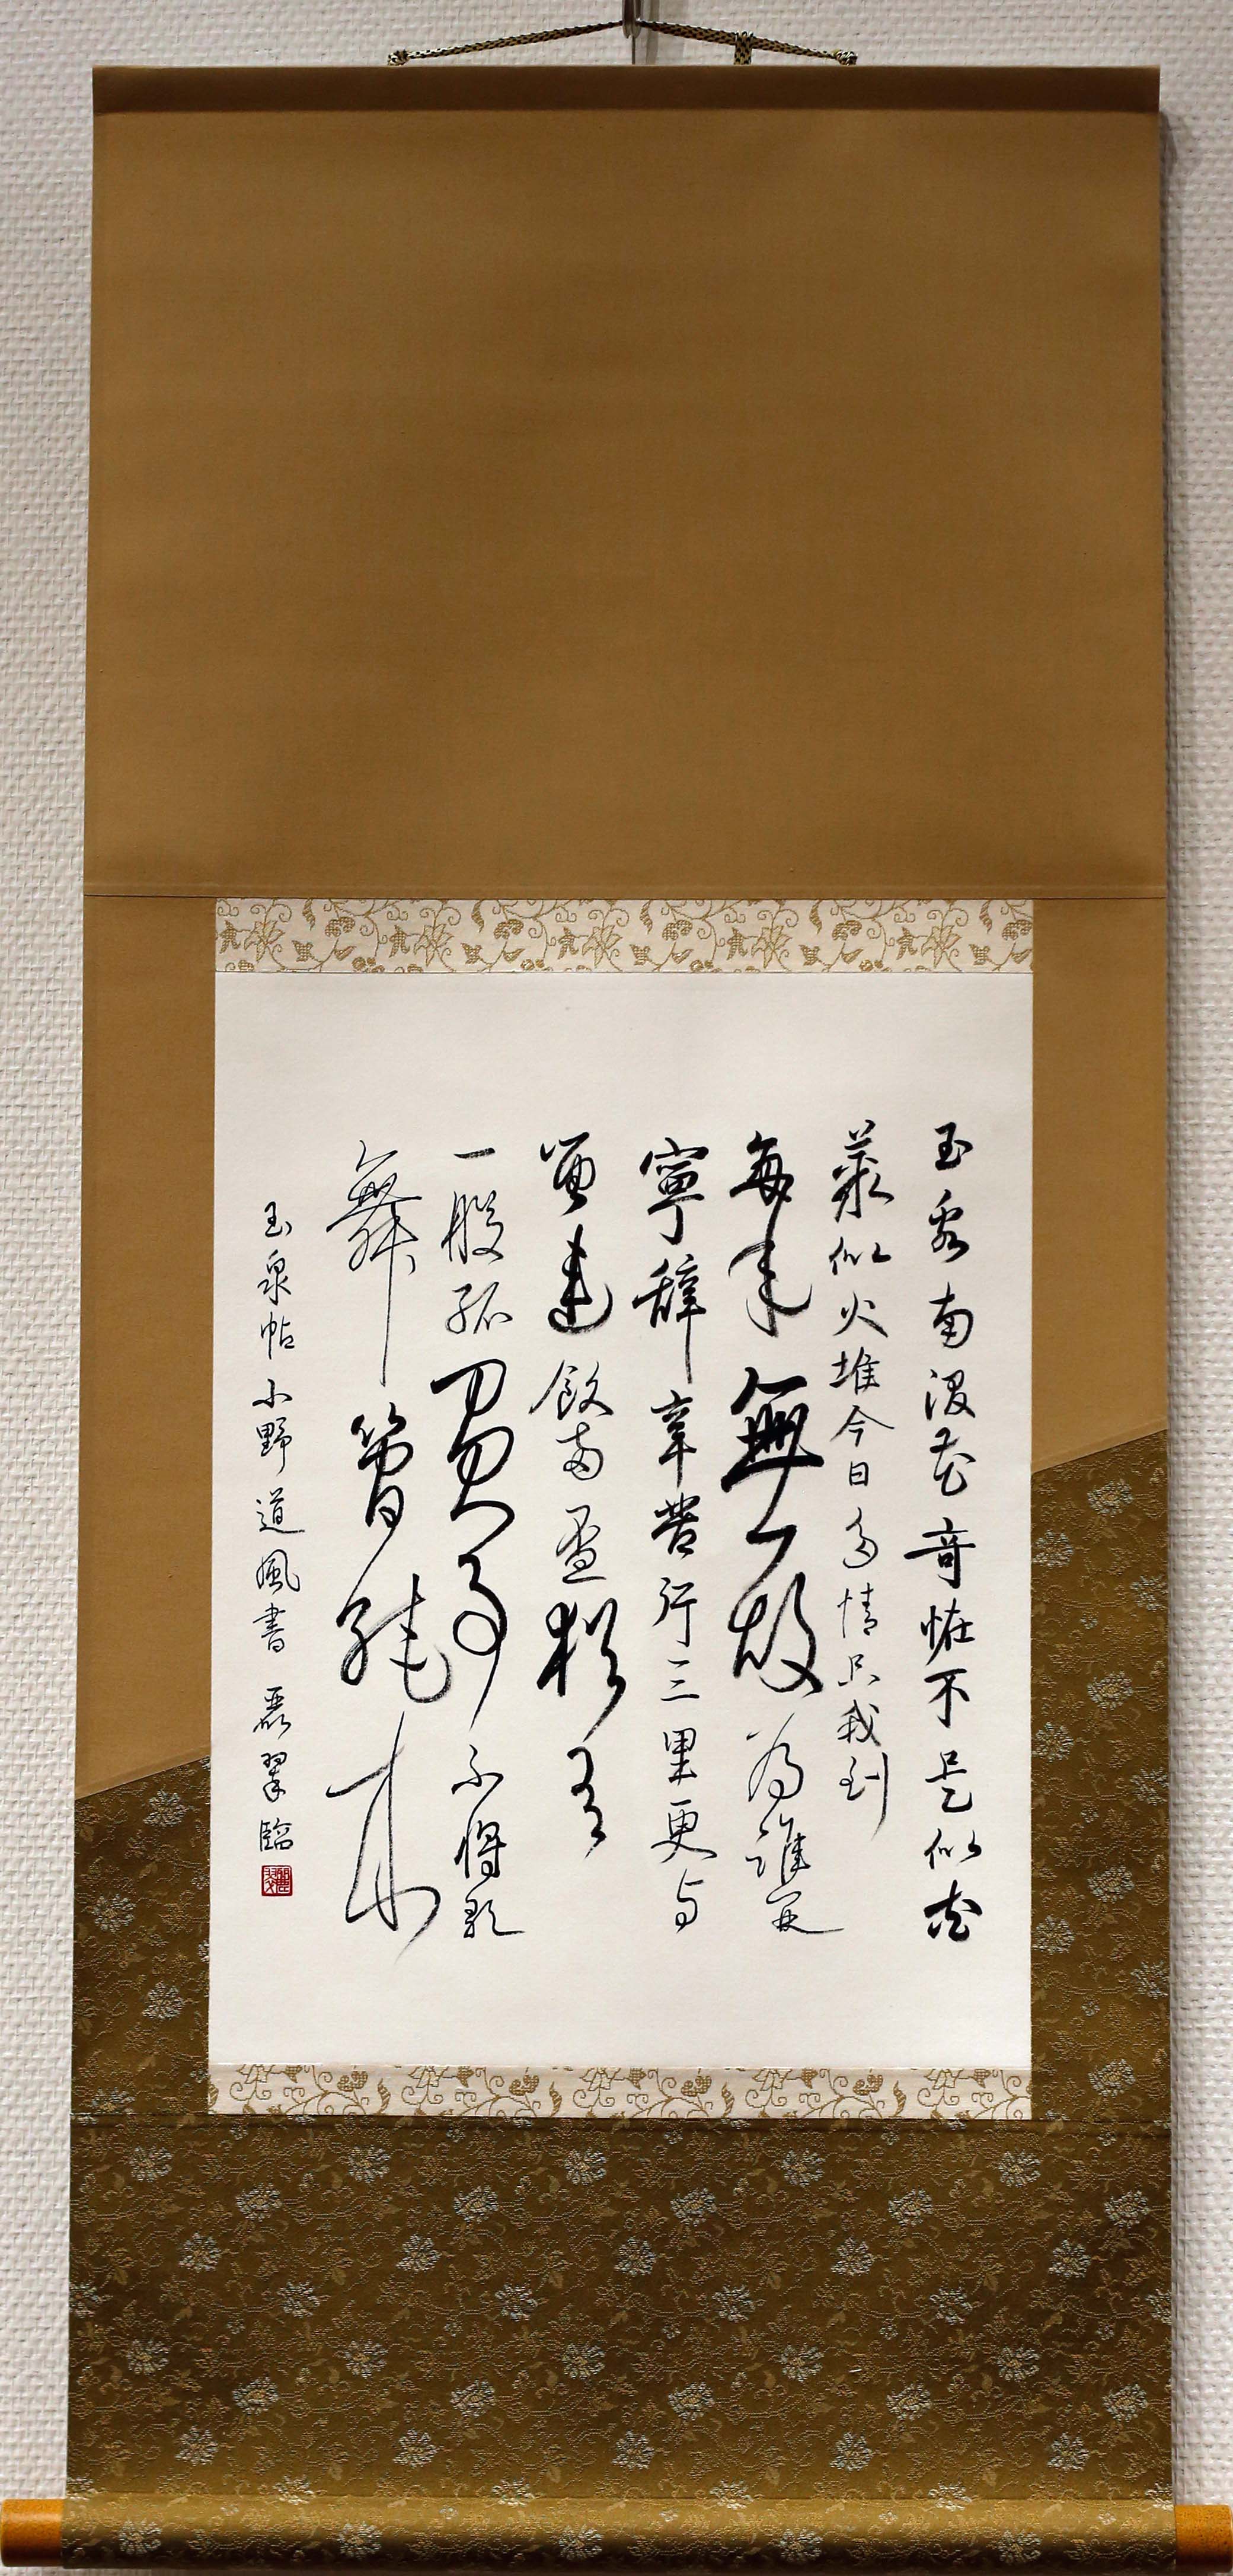 玉泉南澗花奇恠不是似花
叢似火堆今日多情只我到
每年無故為誰開
寧辞辛苦行三里更与
留連飲両盃猶有
一般孤負事不将歌
舞管絃来
玉泉帖小野道風書 麗翠臨